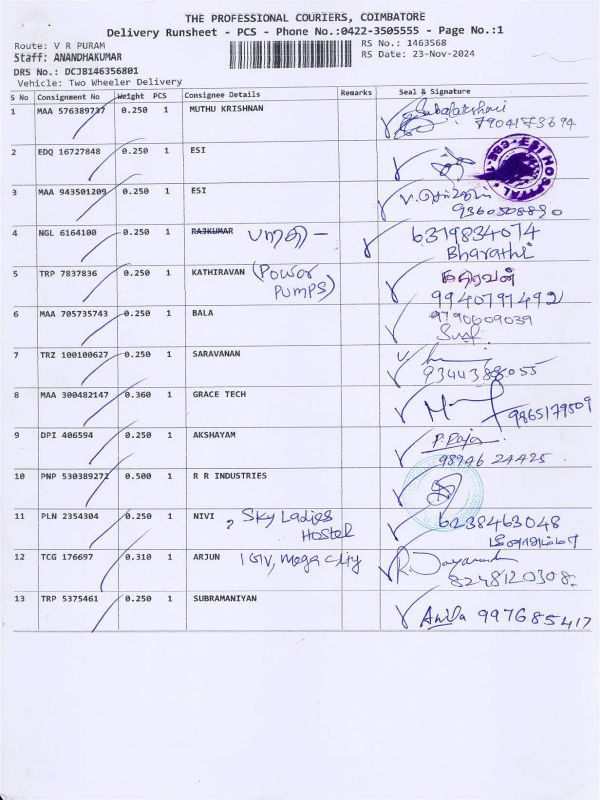 THE PROFESSIONAL COURIERS, COIMBATORE
Delivery Runsheet - PCS - Phone No.:0422-3505555 - Page No.:1
Route: V R PURAM
RS No.: 1463568
Staff: ANANDHAKUMAR
RS Date: 23-Nov-2024
DRS No.: DCJB146356801
Vehicle: Two Wheeler Delivery
S No Consignment No Weight PCS Consignee Details Remarks Seal & Signature
1 MAA 576389737 0.250 1 MUTHU KRISHNAN
7904173694
2 EDQ 16727848 0.250 1 ESI
ESI HOSPITAL
3 MAA 943501209 0.250 1 ESI
9360508890
4 NGL 6164100 0.250 1 RAJKUMAR பாரதி - 6319834074
Bharathi
5 TRP 7837836 0.250 1 KATHIRAVAN (Power PUMPS) கதிரவன்
9940791492
6 MAA 705735743 0.250 1 BALA 9790609039
7 TRZ 100100627 0.250 1 SARAVANAN
9344388055
8 MAA 300482147 0.360 1 GRACE TECH 9865179509
9 DPI 406594 0.250 1 AKSHAYAM P. Raja
98946 24425
10 PNP 530389272 0.500 1 R R INDUSTRIES
11 PLN 2354304 0.250 1 NIVI , Sky Ladies Hostel 6238463048
12 TCG 176697 0.310 1 ARJUN 1 GIV, Mega City
8248120308
13 TRP 5375461 0.250 1 SUBRAMANIYAN Anila 997685417